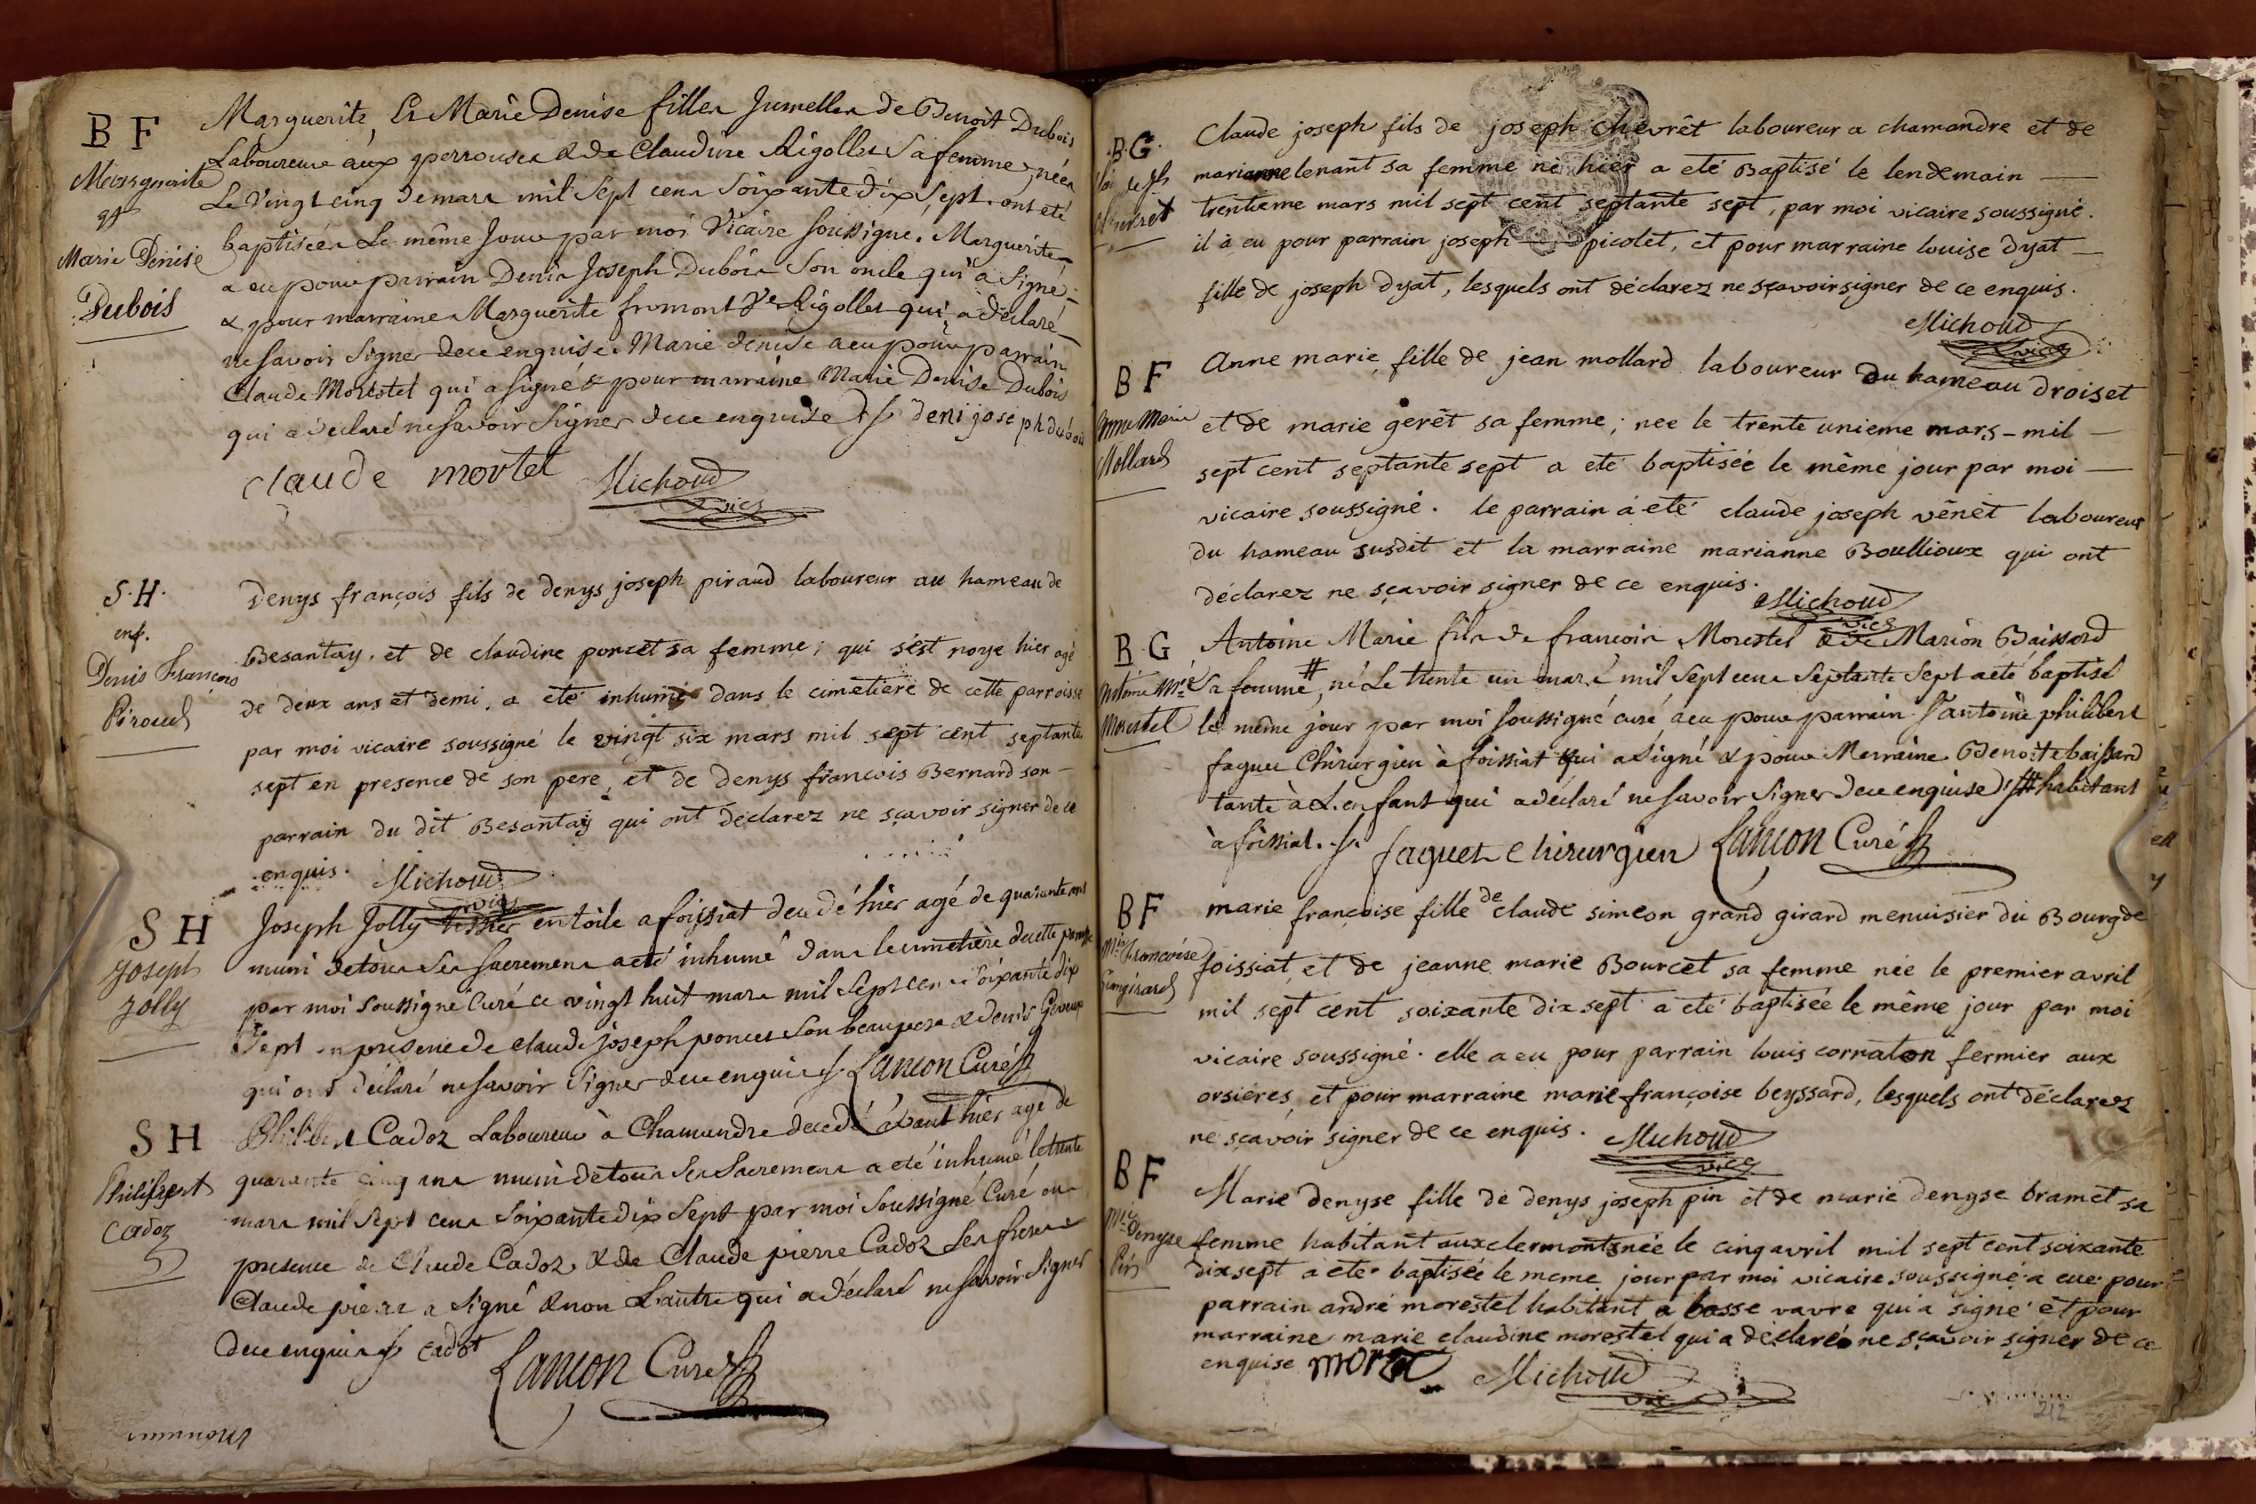 B F
Marguerite
et
Marie Denise
Dubois
Marguerite, Et Marie Denise filles Jumelles de Benoit Dubois
Laboureur aux perrouses & de Claudine Rigollet Sa femme, nées
Le Vingt cinq de mars mil Sept cens Soixante dix Sept. ont eté
baptisées Le même Jour par moi Vicaire Soussigne. Marguerite
a eu pour parrain Denis Joseph Dubois Son oncle qui a Signé
& pour marraine Marguerite fromont Ve Rigollet qui a déclaré
ne Savoir Signer de ce enquise. Marie denise a eu pour parrain
Claude Morestel qui a signé & pour marraine Marie Denise Dubois
qui a déclaré ne Savoir Signer de ce enquise deni joseph dubois
claude mortel Michoud
vice
S. H.
enf.
Denis François
Piroud
Denys françois fils de denys joseph piraud laboureur au hameau de
Besantay, et de claudine poncet sa femme; qui s'est noye hier agé
de deux ans et demi, a eté inhumé dans le cimetiere de cette parroisse
par moi vicaire soussigné le vingt six mars mil sept cent septante
sept en presence de son pere, et de denys francois Bernard son
parrain du dit Besantay qui ont declarez ne sçavoir signer de ce
enquis. Michoud
vice
S H
Joseph
Jolly
Joseph Jolly tissier en toile a foissiat decedé hier agé de quarante ans
muni de tous Ses Sacremens a eté inhumé dans le cimetière de cette paroisse
par moi Soussigné Curé ce vingt huit mars mil Sept cens Soixante dix
Sept en presence de claude joseph poncet Son beaupere & denis
qui ont déclaré ne Savoir Signer de ce enquis Lancon Curé
S H
Philibert
Cadoz
Philibert Cadoz Laboureur à Chamandre decedé avant hier agé de
quarante cinq ans muni de tous Ses Sacremens a eté inhumé le trente
mars mil Sept cens Soixante dix Sept par moi Soussigné Curé en
presence de Claude Cadoz & de Claude pierre Cadoz Ses freres
Claude pierre a Signé & non L'autre qui a déclaré ne Savoir Signer
de ce enquis cadot
Lancon Curé
B. G.
Chevret
Claude joseph fils de joseph chevrêt laboureur a chamandre et de
marianne lenant sa femme né hier a eté Baptisé le lendemain
trentieme mars mil sept cent septante sept, par moi vicaire soussigné.
il à eu pour parrain joseph picolet, et pour marraine louise dyat
fille de joseph dyat, lesquels ont déclarez ne sçavoir signer de ce enquis.
Michoud
vice
B F
Anne Marie
Mollard
Anne marie fille de jean mollard laboureur du hameau droiset
et de marie gerêt sa femme; nee le trente unieme mars - mil
sept cent septante sept a eté baptisée le même jour par moi
vicaire soussigné. le parrain á eté claude joseph vênêt laboureur
du hameau susdit et la marraine marianne Boullioux qui ont
déclarez ne sçavoir signer de ce enquis.
Michoud
vice
B G
Antoine Mie
Morestel
Antoine Marie fils de francois Morestel & de Marion Baissard
Sa femme #, né Le trente un mars mil Sept cens Septante Sept a eté baptisé
le même jour par moi soussigné curé a eu pour parrain Sr antoine philibert
faguet Chirurgien à foissiat qui a Signé & pour Marraine Benoite baissard
tante à L'enfant qui a déclaré ne Savoir Signer de ce enquise # habitant
à foissiat. faguet chirurgien Lancon Curé
B F
Mie Francoise
Grangirard
marie françoise fille de claude simeon grand girard menuisier du Bourg de
foissiat, et de jeanne marie Bourcet sa femme née le premier avril
mil sept cent soixante dix sept a eté baptisée le même jour par moi
vicaire soussigné. elle a eu pour parrain louis cornaton fermier aux
orsiéres, et pour marraine marie françoise beyssard, lesquels ont déclarez
ne sçavoir signer de ce enquis. Michoud
vice
B F
Mie Denyse
Pin
Marie denyse fille de denys joseph pin et de marie denyse bramet sa
femme habitant aux clermonts née le cinq avril mil sept cent soixante
dix sept a eté baptisée le meme jour par moi vicaire soussigné a eue pour
parrain andré morestel habitant a basse vavre qui a signé et pour
marraine marie claudine morestel qui a déclaré ne sçavoir signer de ce
enquise Michoud
vic
212